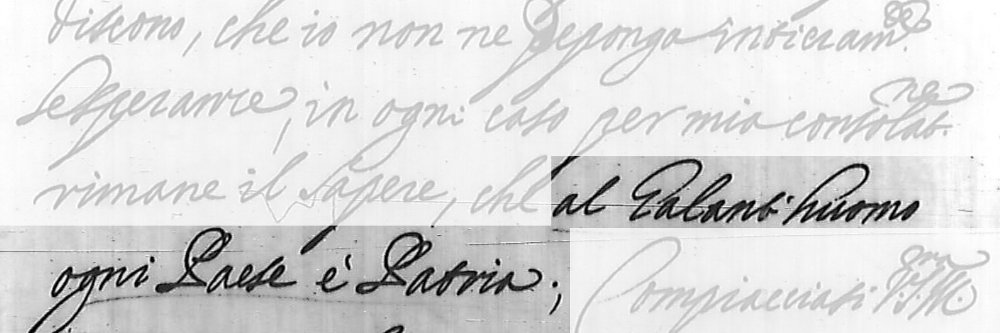 discono, che io non ne deponga intieram.te
le speranze, in ogni caso per mia consolat.ne
rimane il sapere, che al Galant'huomo
ogni Paese è Patria;
Compiacciasi V.S.M.